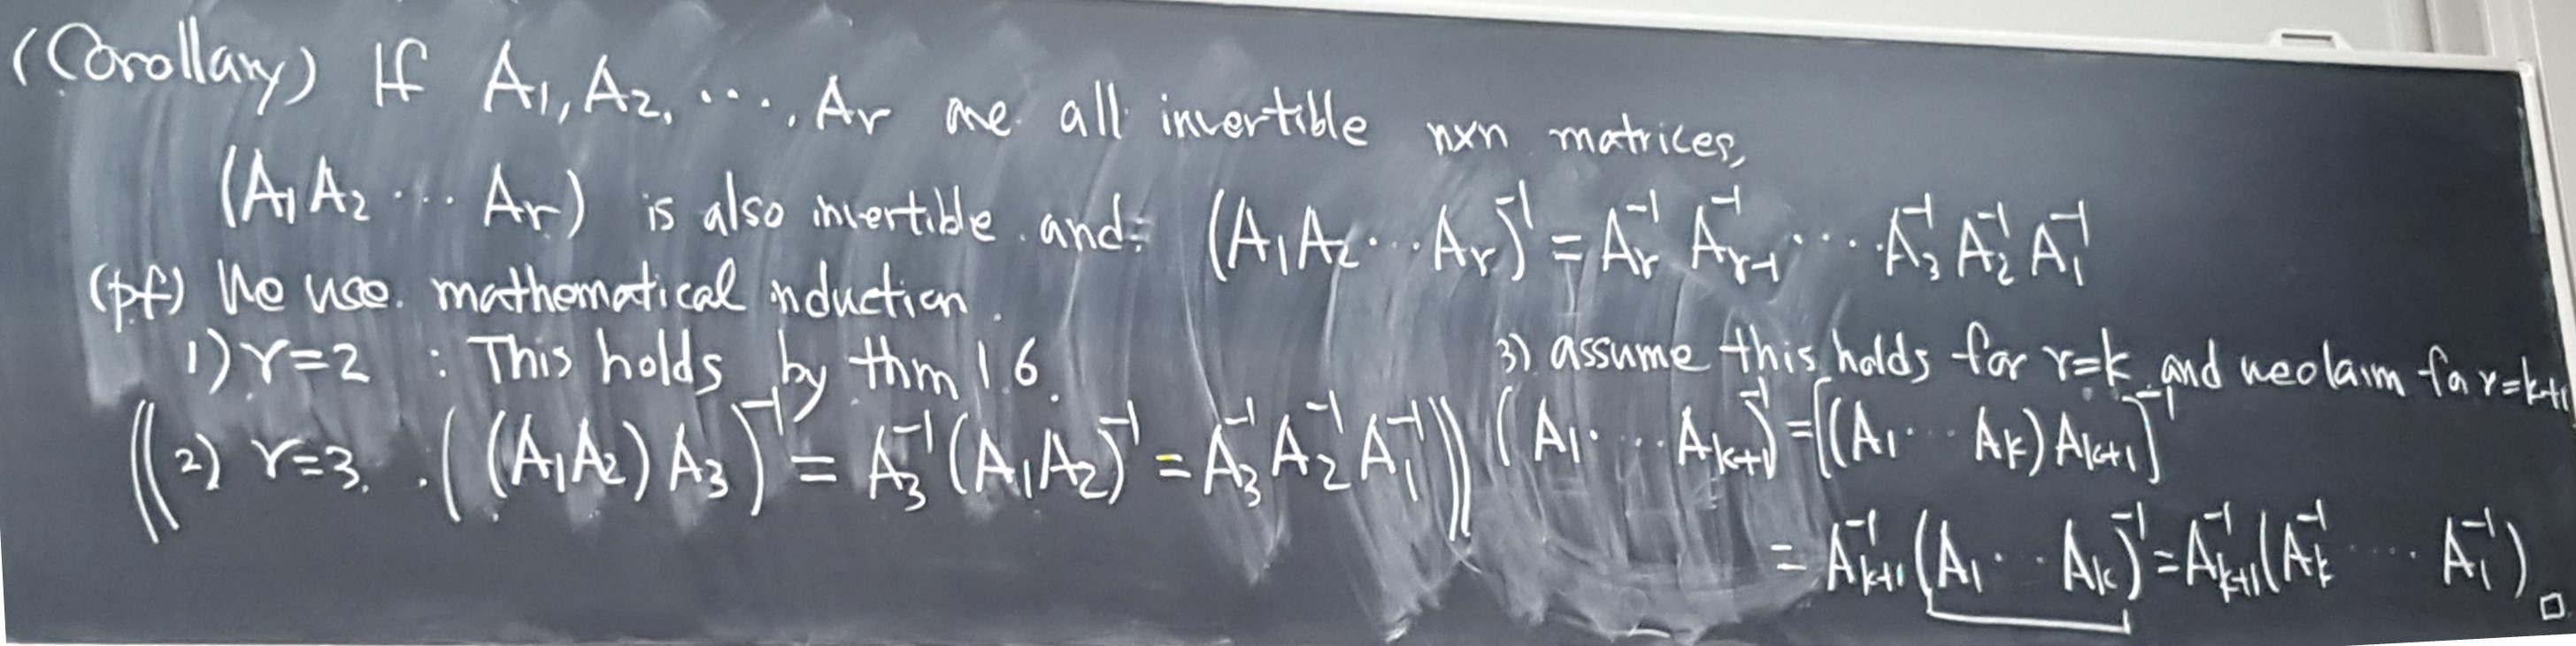 (Corollary) If A₁, A₂, ⋯, Aᵣ are all invertible n×n matrices,
(A₁A₂⋯Aᵣ) is also invertible and: (A₁A₂⋯Aᵣ)⁻¹ = Aᵣ⁻¹ Aᵣ₋₁⁻¹ ⋯ A₃⁻¹ A₂⁻¹ A₁⁻¹
(pf) We use mathematical induction.
1) r=2 : This holds by thm 1.6.
((2) r=3. ((A₁A₂)A₃)⁻¹ = A₃⁻¹(A₁A₂)⁻¹ = A₃⁻¹A₂⁻¹A₁⁻¹))
3) assume this holds for r=k and we claim for r=k+1
(A₁⋯Aₖ₊₁)⁻¹ = [(A₁⋯Aₖ)Aₖ₊₁]⁻¹
= Aₖ₊₁⁻¹(A₁⋯Aₖ)⁻¹ = Aₖ₊₁⁻¹(Aₖ⁻¹⋯A₁⁻¹) □